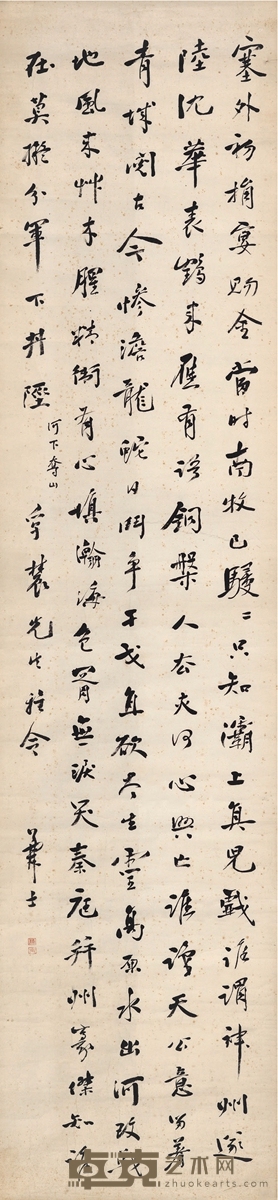 塞外初捐宴賜金當時南牧已駸〻只知灞上真兒戲誰謂神州遂
陸沈華表鶴來應有語銅槃人去亦何心興亡誰識天公意留著
青城閱古今慘澹龍蛇日鬥爭干戈直欲盡生靈高原水出河改戰
地風来艸木腥精衛有心填瀚海包胥無淚哭秦庭并州豪傑知誰
在莫擬分軍下井陘
河下奪山
先生雅令
士
卓克艺术网
zhuokearts.com